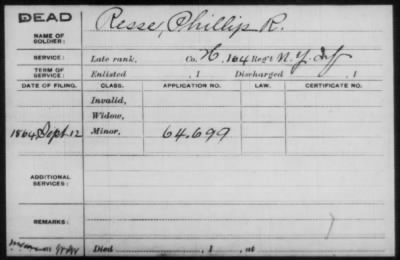 DEAD
NAME OF SOLDIER: Resse, Phillip R.
SERVICE: Late rank, Co. H, 164 Reg't N.Y. Inf
TERM OF SERVICE: Enlisted , 1 Discharged , 1
DATE OF FILING. CLASS. APPLICATION NO. LAW. CERTIFICATE NO.
Invalid,
Widow,
1864, Sept. 12 Minor, 64.699
ADDITIONAL SERVICES:
REMARKS:
Died , 1 , at